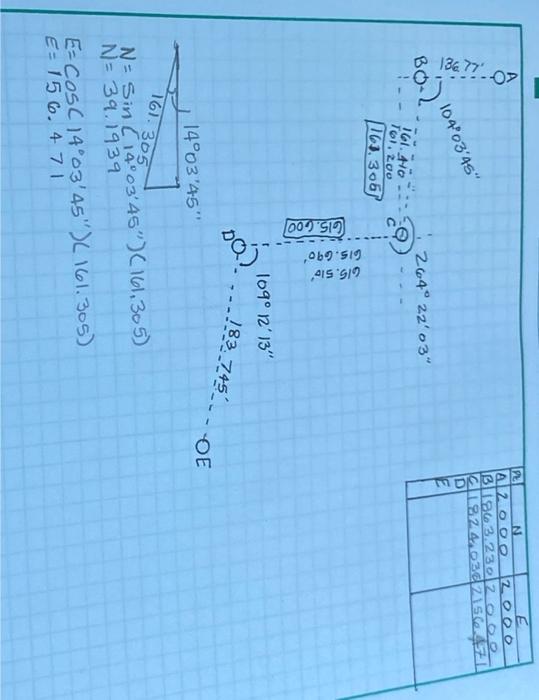 A
136.77'
B
104°03'45"
161.410
161.200
161.305
C
264° 22' 03"
615.600
615.690'
615.510'
D
109° 12' 13"
183.745'
E
Pt N E
A 2000 2000
B 1863.230 2000
C 1824.036 2156.471
D
E
14°03'45"
161.305
N = Sin(14°03'45")(161.305)
N = 39.1939
E = Cos(14°03'45")(161.305)
E = 156.471